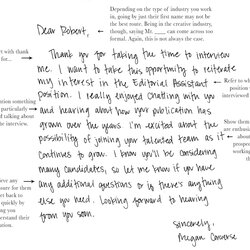 Depending on the type of industry you work
in, going by just their first name may not be
the best route. Being in the creative industry,
though, saying Mr. ____ can come across too
formal. Again, this is not always the case.
Dear Robert,
Thank you for taking the time to interview
me. I want to take this opportunity to reiterate
my interest in the Editorial Assistant
position. I really enjoyed chatting with you
and hearing about how your publication has
grown over the years. I'm excited about the
possibility of joining your talented team as it
continues to grow. I know you'll be considering
many candidates, so let me know if you have
any additional questions or if there's anything
else you need. Looking forward to hearing
from you soon.
Sincerely,
Megan Converse
rt with thank
for...
ntion something
particularly
d talking about
the interview.
ve any
sure for them
et back to
quickly by
ng you
nderstand their
ation.
Refer to wh
position
interviewed
Show them
are
about
prospec
working
th